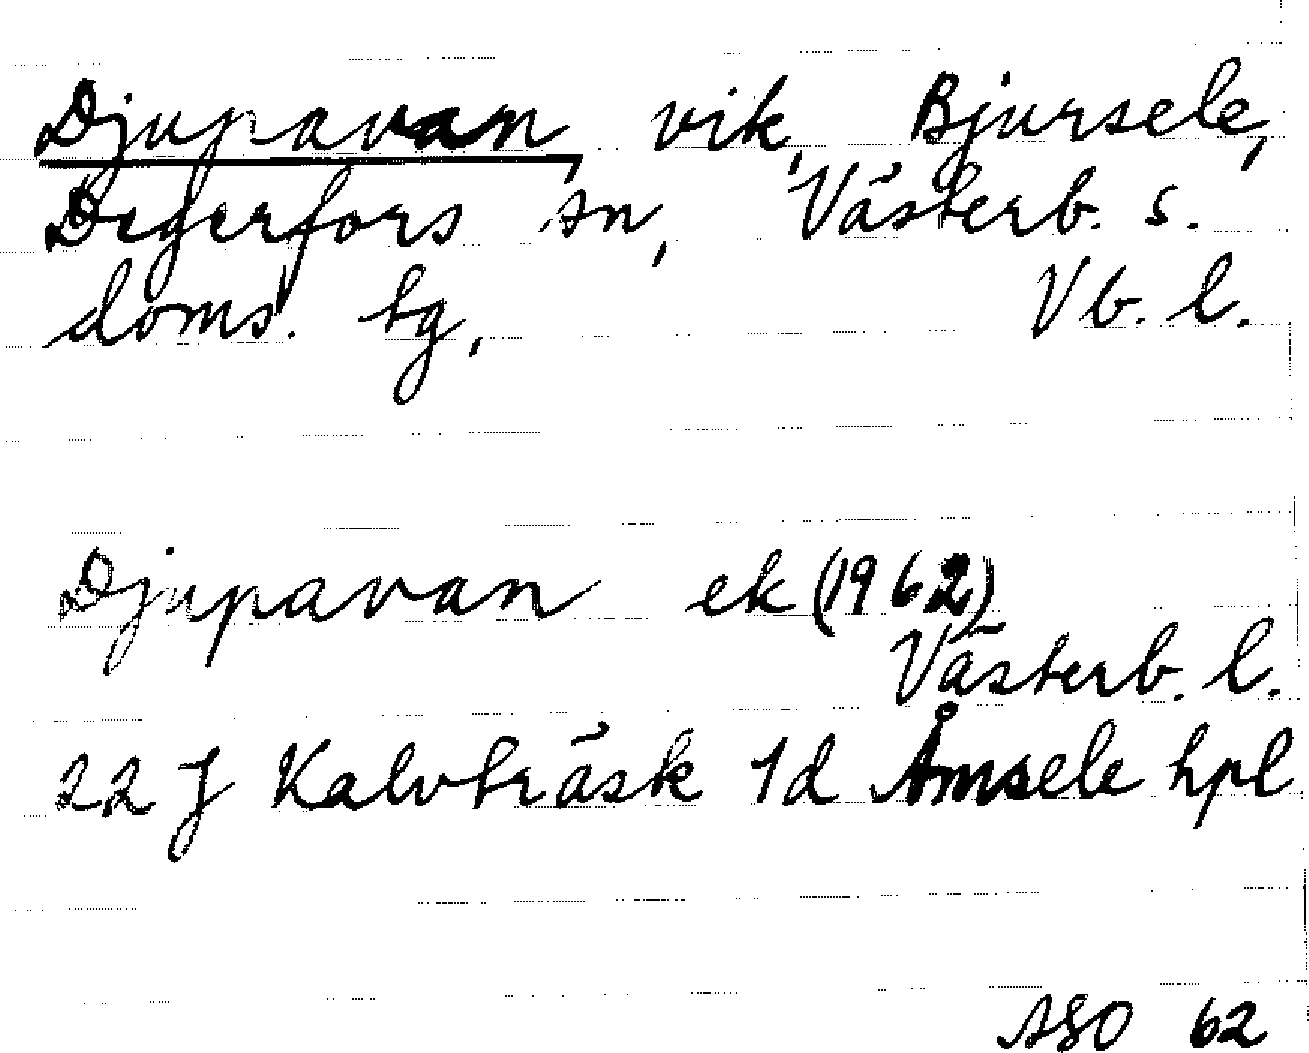 Djupavan, vik, Bjursele,
Degerfors sn, Västerb. s.
doms. tg, Vb. l.
Djupavan ek (1962)
Västerb. l.
22 J Kalvträsk 1d Åmsele hpl
ASO 62